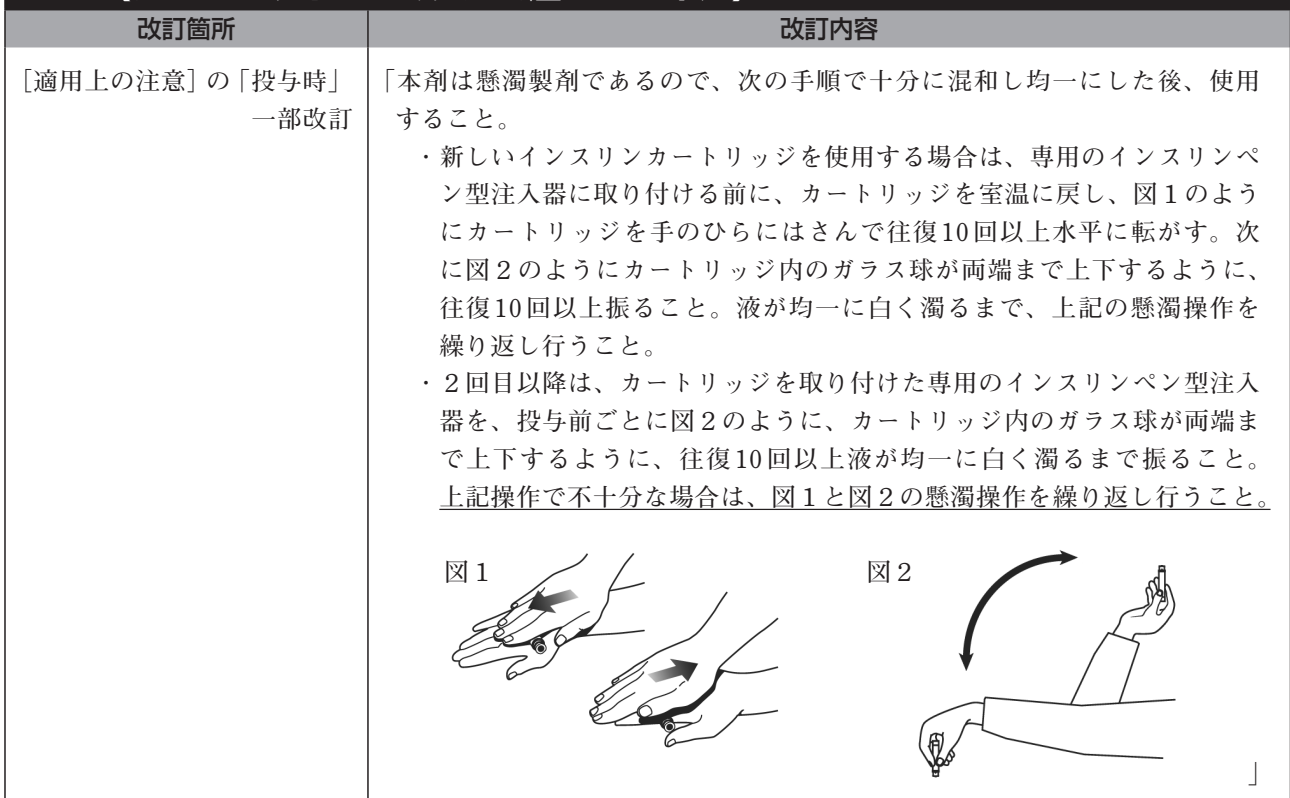 改訂箇所
改訂内容
[適用上の注意]の「投与時」
一部改訂
「本剤は懸濁製剤であるので、次の手順で十分に混和し均一にした後、使用
すること。
・新しいインスリンカートリッジを使用する場合は、専用のインスリンペ
ン型注入器に取り付ける前に、カートリッジを室温に戻し、図1のよう
にカートリッジを手のひらにはさんで往復10回以上水平に転がす。次
に図2のようにカートリッジ内のガラス球が両端まで上下するように、
往復10回以上振ること。液が均一に白く濁るまで、上記の懸濁操作を
繰り返し行うこと。
・2回目以降は、カートリッジを取り付けた専用のインスリンペン型注入
器を、投与前ごとに図2のように、カートリッジ内のガラス球が両端ま
で上下するように、往復10回以上液が均一に白く濁るまで振ること。
上記操作で不十分な場合は、図1と図2の懸濁操作を繰り返し行うこと。
図1
図2
」